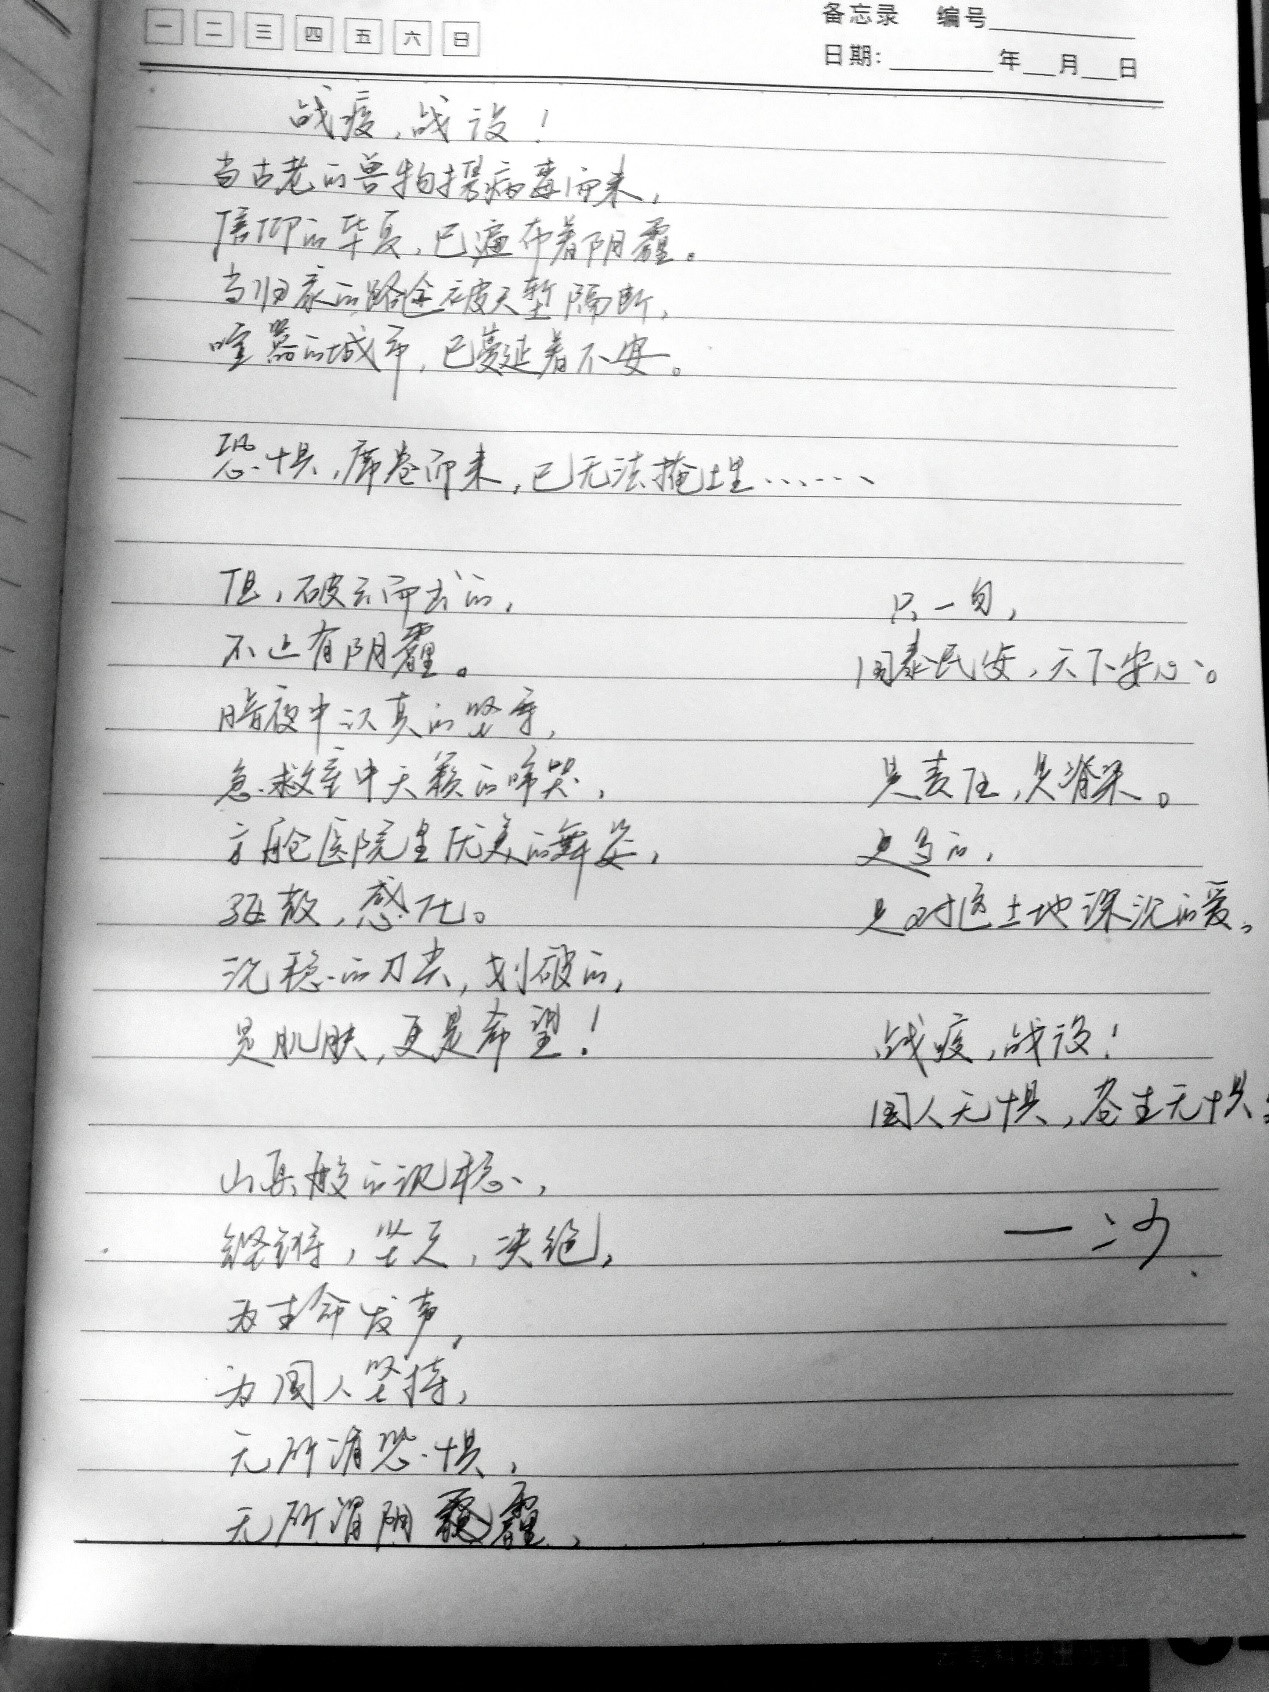 一 二 三 四 五 六 日
备忘录 编号
日期: 年 月 日
战疫,战役!
当古老的兽物携病毒而来,
信仰的华夏,已遍布着阴霾。
当归家的路途被天堑隔断,
喧嚣的城市,已蔓延着不安。
恐惧,席卷而来,已无法掩埋……
但,破云而去的,
不止有阴霾。
暗夜中认真的坚守,
急救室中天籁的啼哭,
方舱医院里优美的舞姿,
驱散,感化。
沉稳的刀尖,划破的,
是肌肤,更是希望!
山岳般的沉稳,
铿锵,坚定,决绝,
为生命发声,
为国人坚持,
无所谓恐惧,
无所谓阴霾,
只一句,
国泰民安,天下安心。
是责任,是脊梁。
更多的,
是对这土地深沉的爱。
战疫,战役!
国人无惧,苍生无惧
一沙